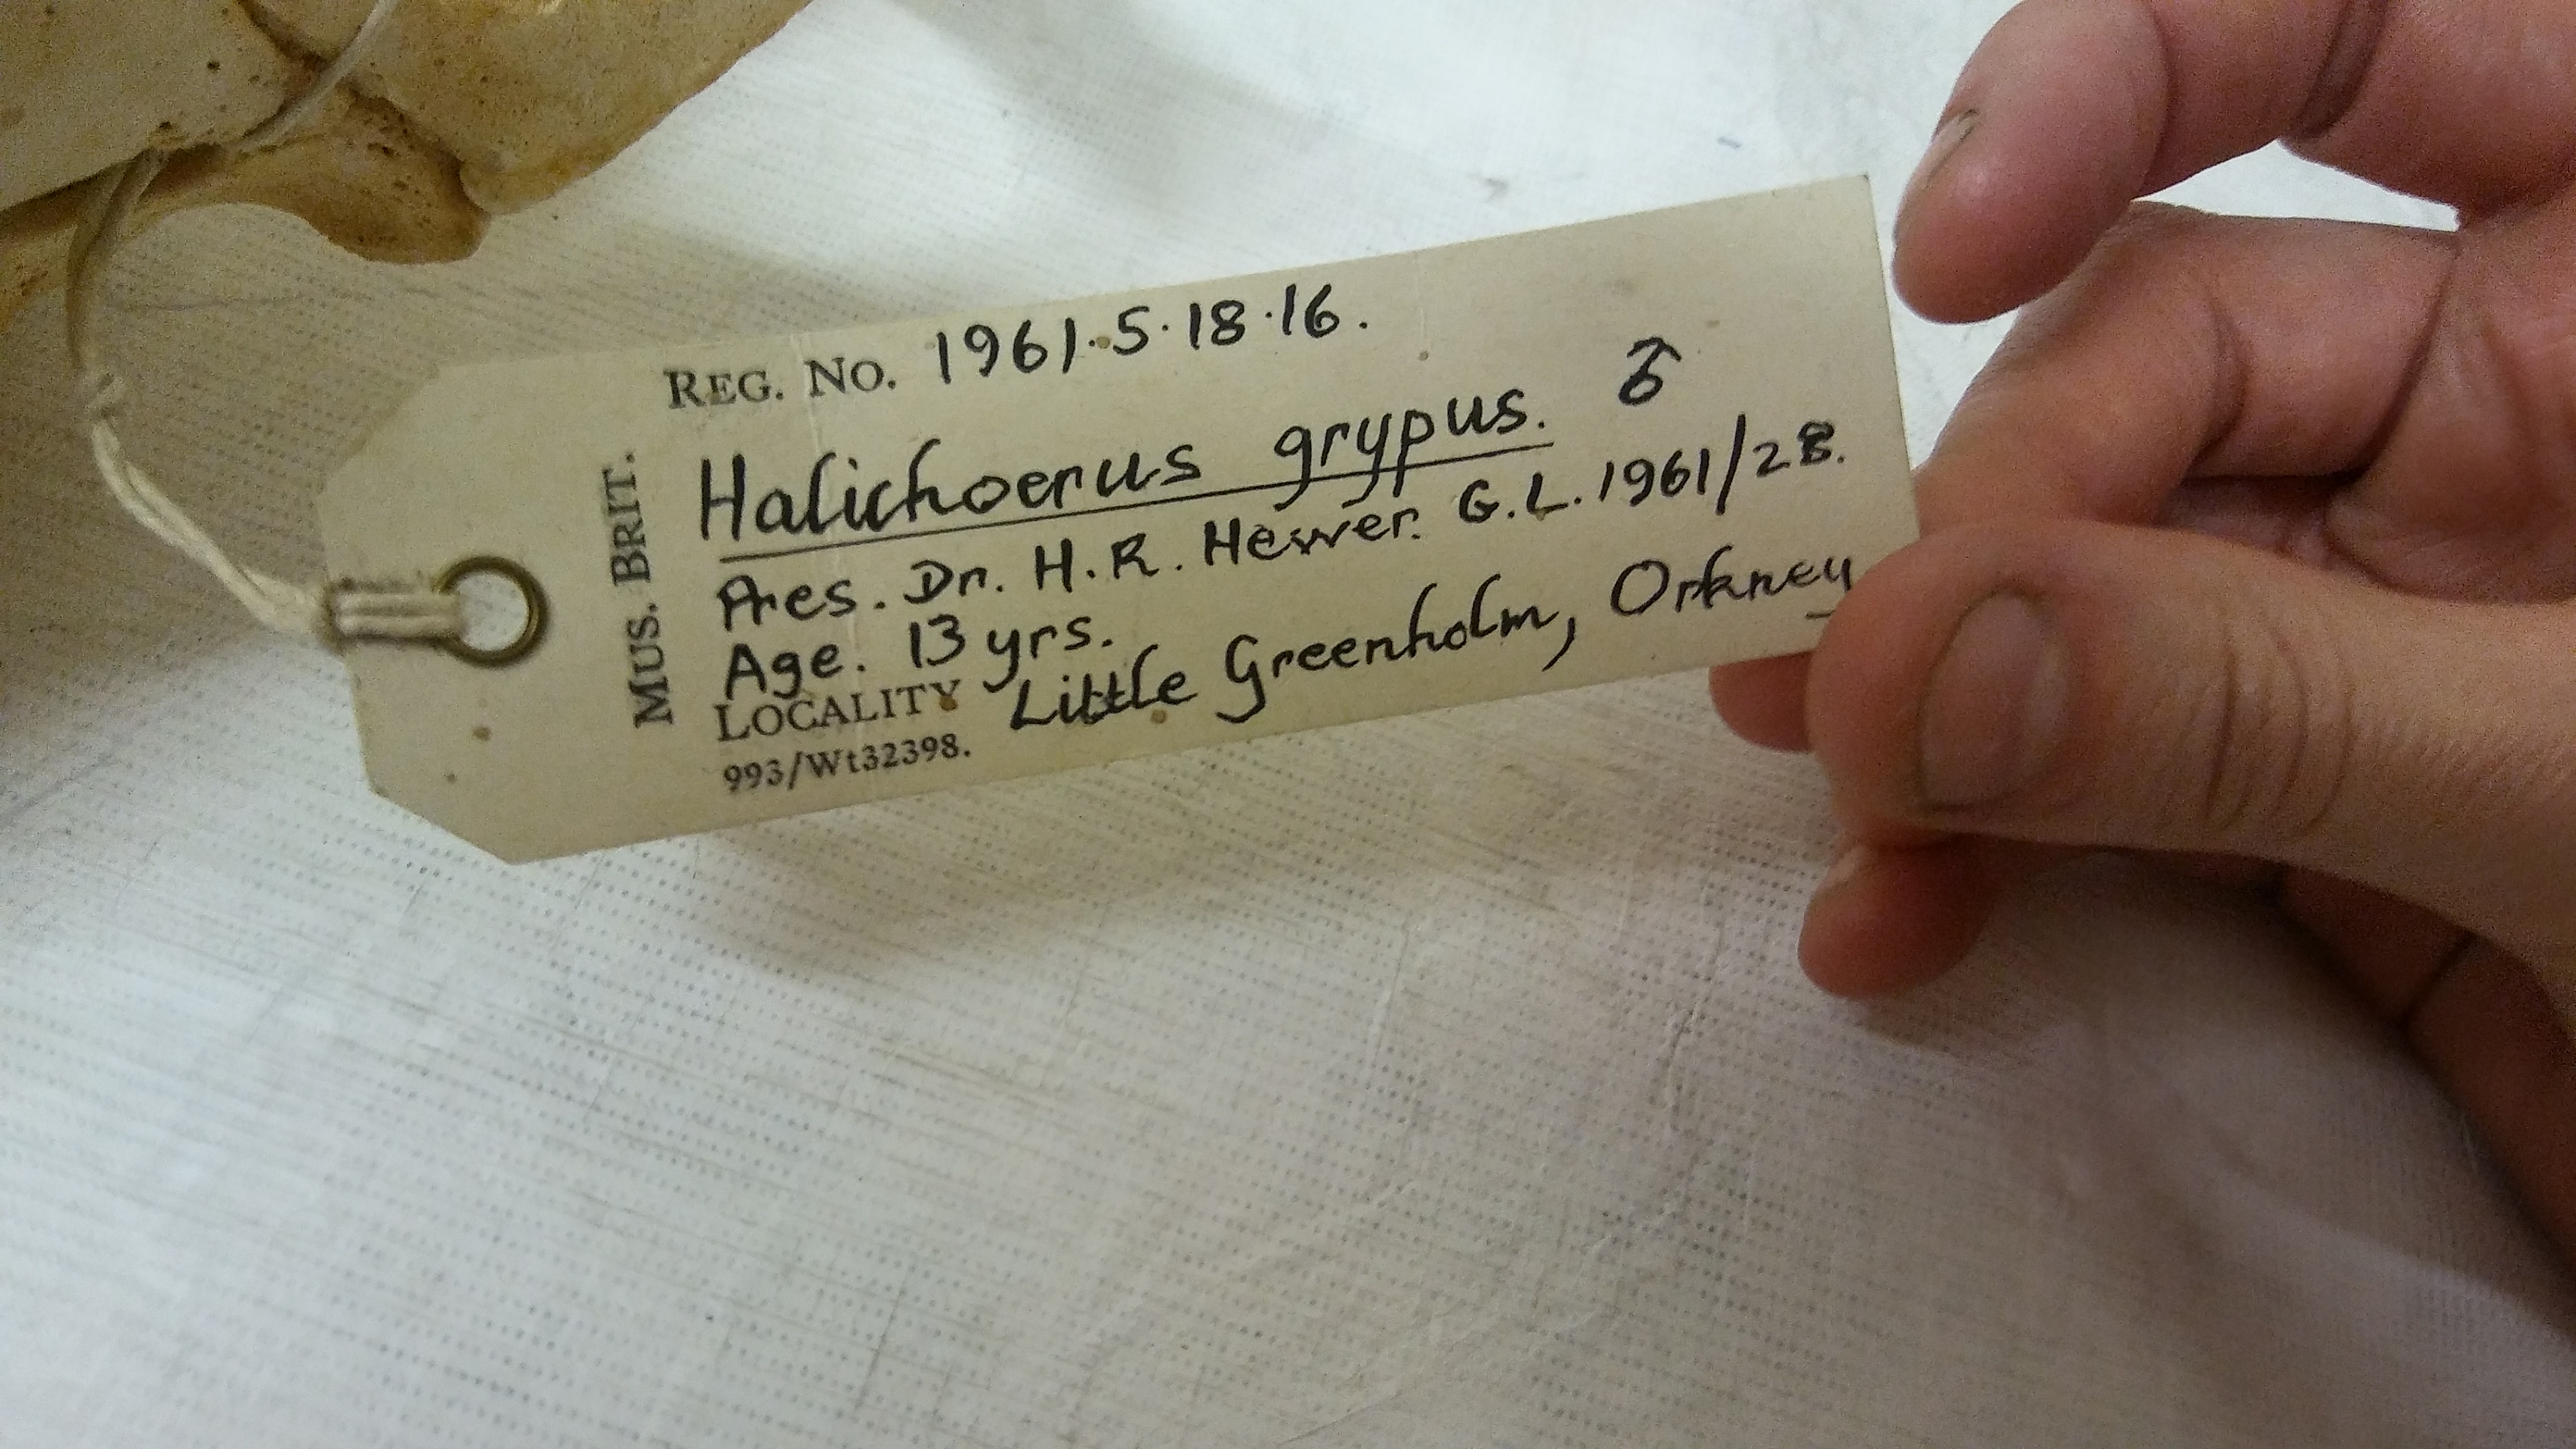 MUS. BRIT.
REG. NO. 1961.5.18.16.
Halichoerus grypus. ♂
Pres. Dr. H.R. Hewer. G.L. 1961/28.
Age. 13 yrs.
LOCALITY Little Greenholm, Orkney
993/Wt32398.